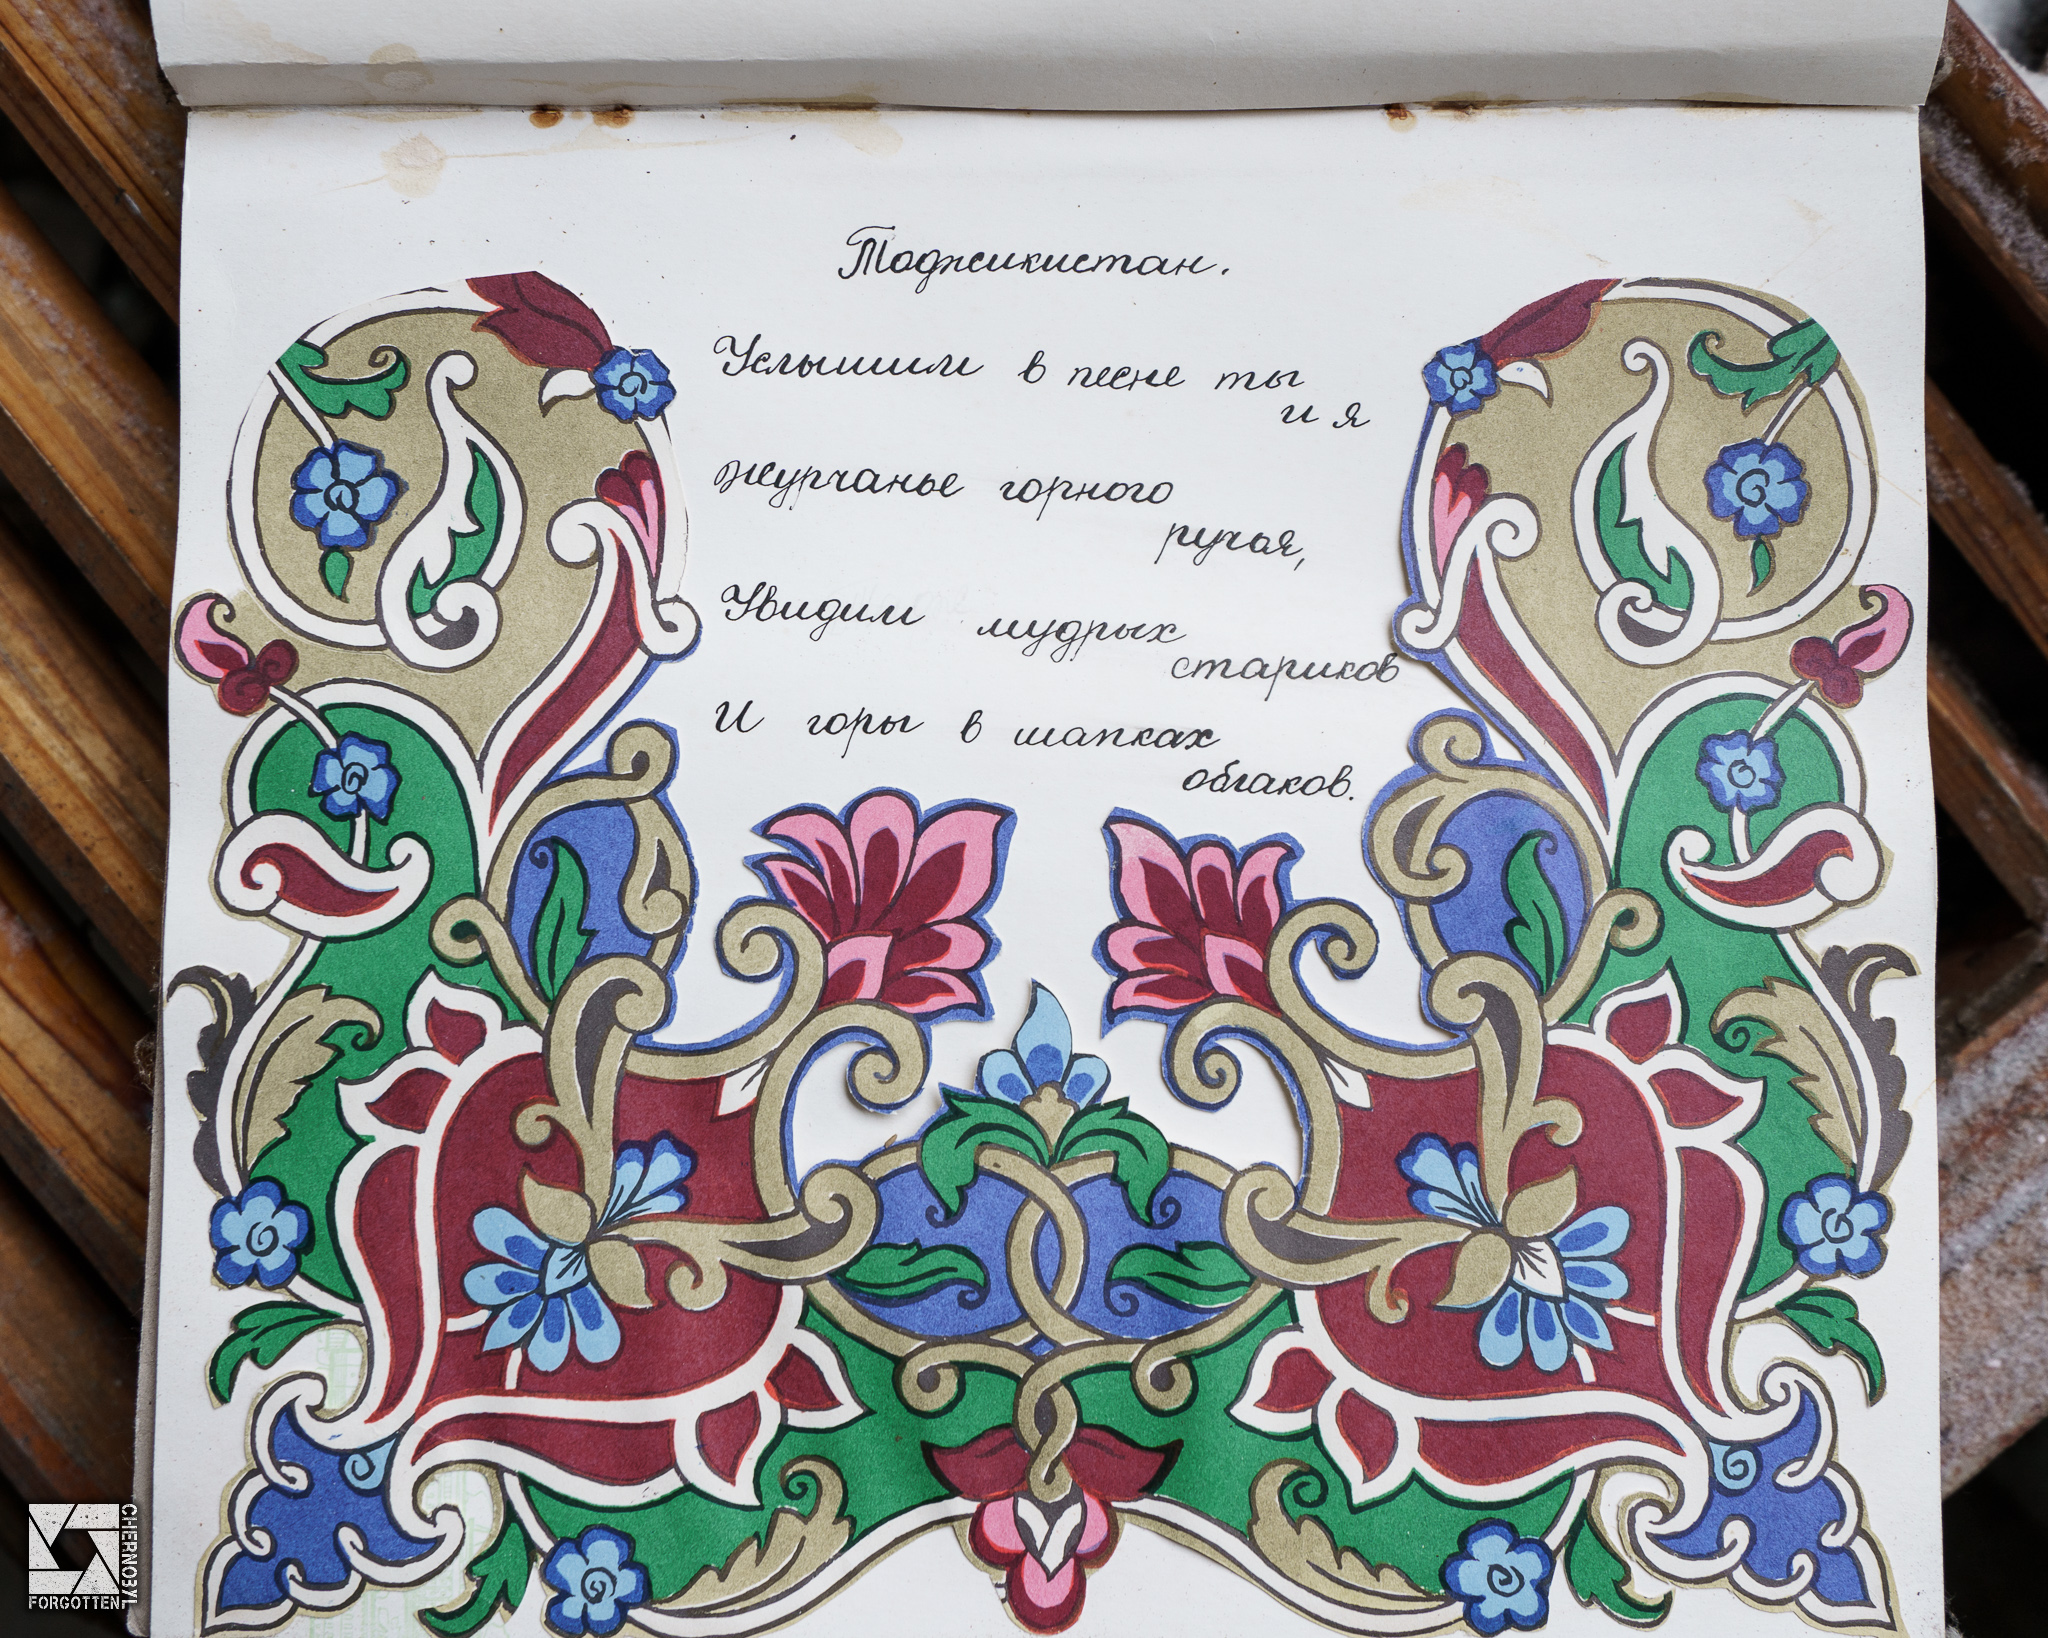 Таджикистан.
Услышим в песне ты
и я
журчанье горного
ручья,
Увидим мудрых
стариков
И горы в шапках
облаков.
CHERNOBYL
FORGOTTEN